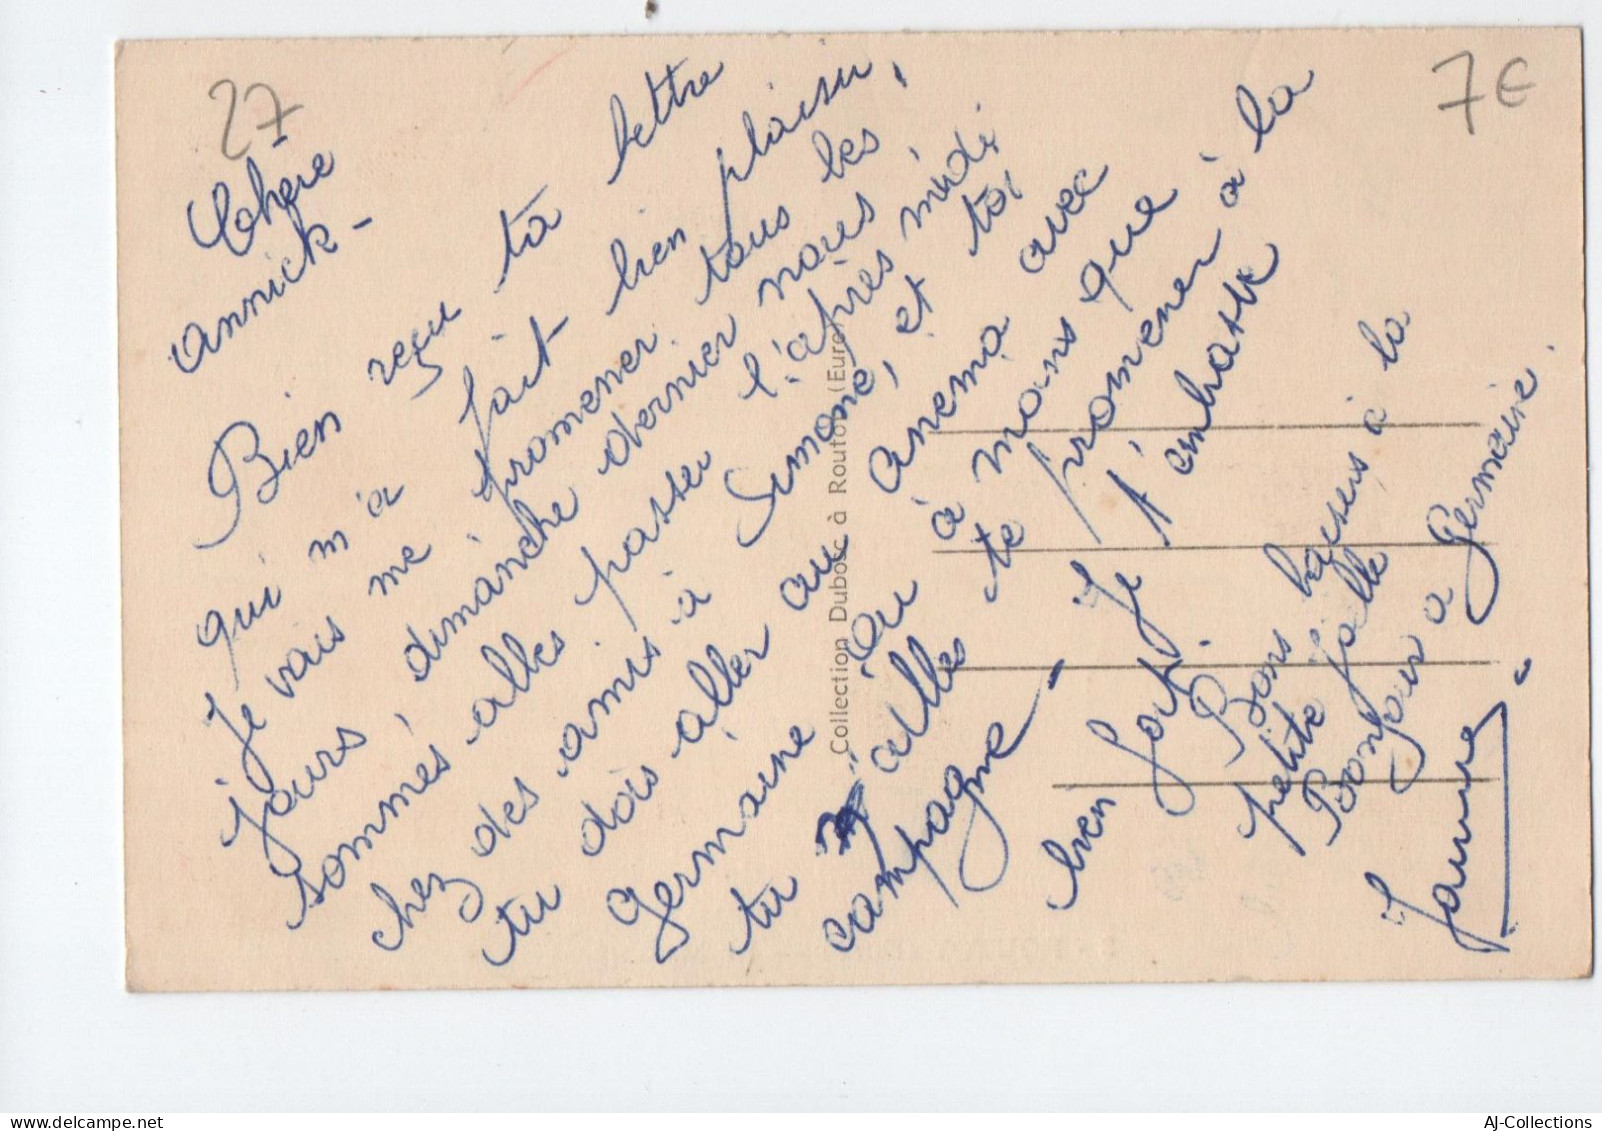 27
7€
Chère
Annick -
Bien reçu ta lettre
qui m'a fait bien plaisir,
Je vais me promener tous les
jours, dimanche dernier nous
sommes allés passer l'après midi
chez des amis à Simone, et toi
tu dois aller au cinema avec
Germaine ou à moins que
tu allles te promener à la
campagne - Je t'embasse
bien fort.
Bons baisers à la
petite Joëlle
Bonjour a Germaine.
Collection Dubosc à Routot (Eure)
AJ-Collections